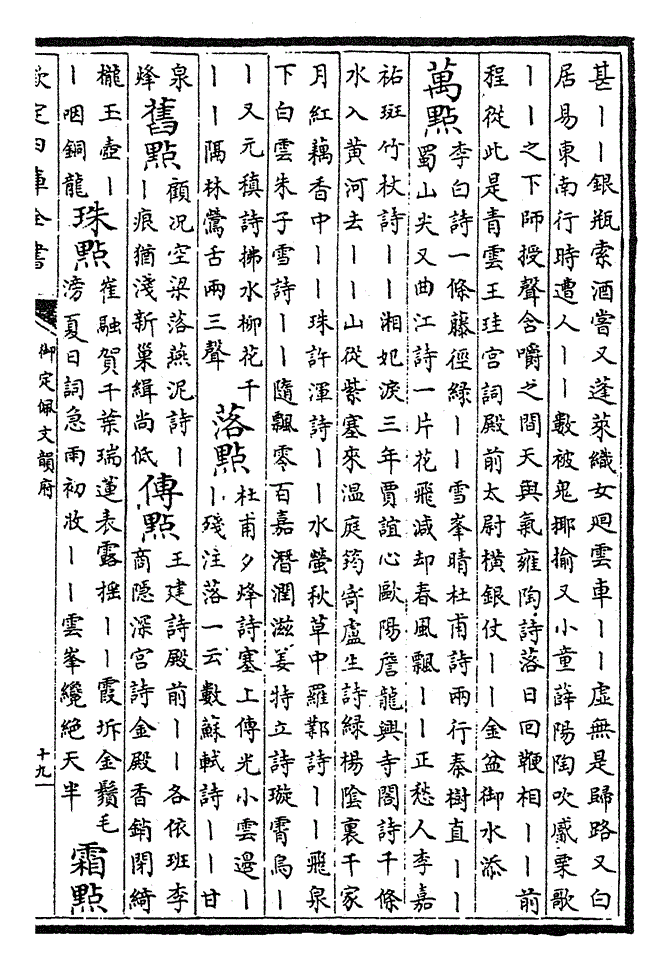 甚丨丨銀瓶索酒嘗又蓬萊織女廻雲車丨丨虛無是歸路又白
居易東南行時遭人丨丨數被鬼揶揄又小童薛陽陶吹觱栗歌
丨丨之下師授聲含嚼之間天與氣雍陶詩落日回鞭相丨丨前
程從此是青雲王珪宮詞殿前太尉橫銀仗丨丨金盆御水添
萬點
李白詩一條藤徑綠丨丨雪峯晴杜甫詩兩行秦樹直丨丨
蜀山尖又曲江詩一片花飛減却春風飄丨丨正愁人李嘉
祐斑竹杖詩丨丨湘妃淚三年賈誼心歐陽詹龍興寺閣詩千條
水入黃河去丨丨山從紫塞來溫庭筠寄盧生詩綠楊陰裏千家
月紅藕香中丨丨珠許渾詩丨丨水螢秋草中羅鄴詩丨丨飛泉
下白雲朱子雪詩丨丨隨飄零百嘉潛潤滋姜特立詩璇霄烏丨
丨又元稹詩拂水柳花千
丨丨隔林鶯舌兩三聲
落點
杜甫夕烽詩塞上傳光小雲邊丨
丨殘注落一云數蘇軾詩丨丨甘
泉
烽
舊點
顧况空梁落燕泥詩丨
丨痕猶淺新巢緝尚低
傳點
王建詩殿前丨丨各依班李
商隱深宮詩金殿香銷閉綺
櫳玉壺丨
丨咽銅龍
珠點
崔融賀千葉瑞蓮表露榣丨丨霞坼金鬚毛
滂夏日詞急雨初收丨丨雲峯纔絕天半
霜點
欽定四庫全書
御定佩文韻府
十九